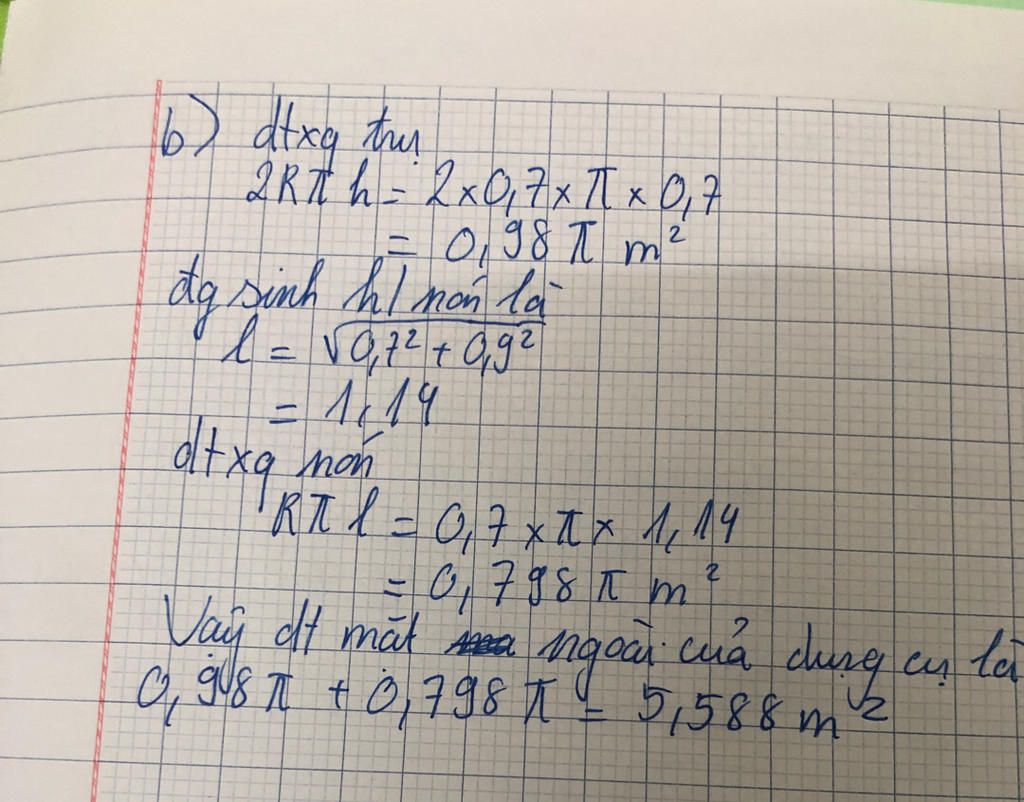 b) dtxq trụ
2Rπh = 2×0,7×π×0,7
= 0,98π m²
đg sinh h/nón là
l = √0,7² + 0,9²
= 1,14
dtxq nón
Rπl = 0,7×π×1,14
= 0,798π m²
Vậy dt mặt ngoài của dụng cụ là
0,98π + 0,798π = 5,588m²